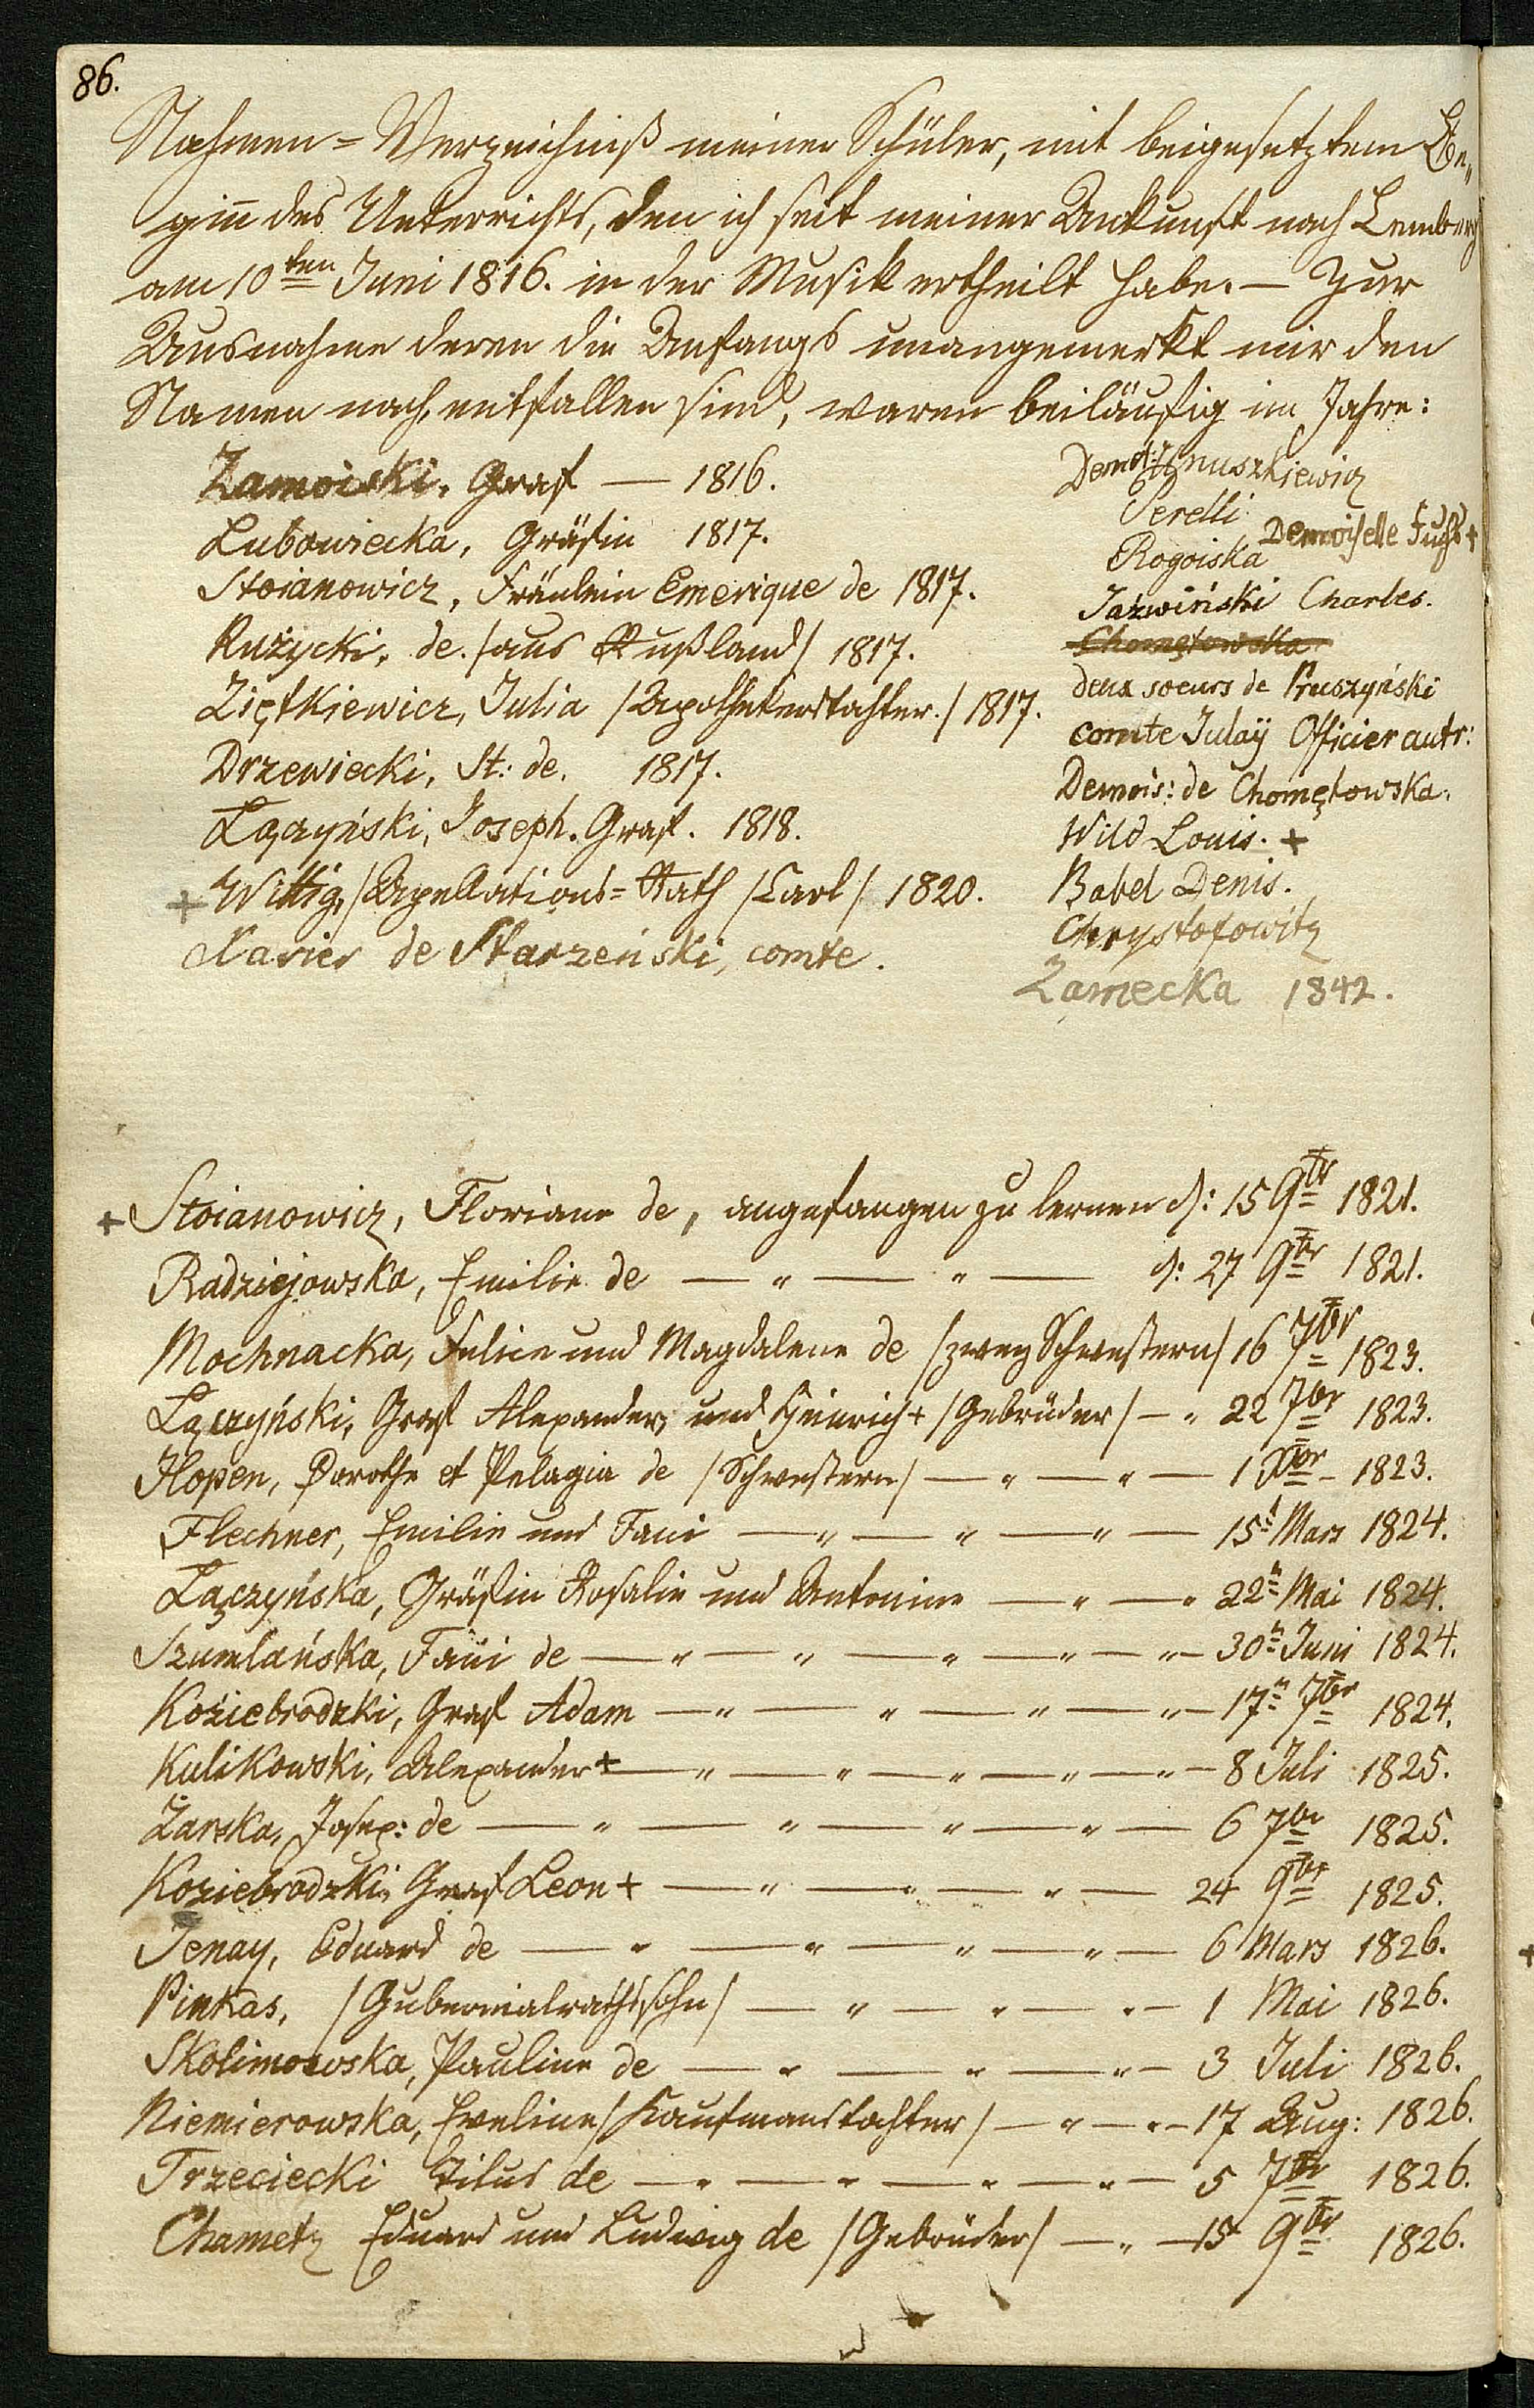 86.
Nahmen=Verzeichniß meiner Schüler, mit beigesetztem Be„
ginn des Unterrichts, den ich seit meiner Ankunft nach Lemberg
am 10ten Juni 1816. in der Musik ertheilt habe. — Zur
Ausnahme deren die Anfangs unangemerkt mir den
Namen nach, entfallen sind, waren beiläufig im Jahre:
Zamoiski, Graf — 1816.
Lubowiecka, Gräfin 1817.
Stoianowicz, Fräulein Emerique de 1817.
Rużycki, de. /aus Rußland/ 1817.
Ziętkiewicz, Julia /Apothekerstochter./ 1817.
Drzewiecki, St: de. 1817.
Łączyński, Joseph. Graf. 1818.
+ Wittig, /Apellations=Rath /Carl/ 1820.
Xavier de Starzeński, comte.
Demois:
Serelli
Demoiselle Fuchs +
Rogoiska
Jaźwiński Charles.
Chomętowska
deux soeurs de Pruszyński
comte Julaÿ Officier autr:
Demois: de Chomętowska.
Wild Louis. +
Babel Denis.
Chrystofowitz
Zamecka 1842.
+ Stoianowicz, Floriane de, angefangen zu lernen d: 15 9br 1821.
Radziejowska, Emilie de — " — " — d: 27 9br 1821.
Mochnacka, Felicie und Magdalene de /zwey Schwestern/ 16 7br 1823.
Łączyński, Graf Alexander, und Heinrich + /Gebrüder/ — " 22 7br 1823.
Hopen, Dorothe et Pelagia de /Schwestern/ — " — " — 1 Xbr — 1823.
Flechner, Emilie und Fani — " — " — " — 15t Mars 1824.
Łączyńska, Gräfin Rosalie und Antonine — " — " 22n Mai 1824.
Szumlańska, Fani de — " — " — " — " — " — 30n Juni 1824.
Koziebrodzki, Graf Adam — " — " — " — " — 17n 7br 1824.
Kulikowski, Alexander + — " — " — " — " — " — 8 Juli 1825.
Żarska, Josep: de — " — " — " — " — 6 7br 1825.
Koziebrodzki, Graf Leon + — " — " — " — 24 9br 1825.
Jenay, Eduard de — " — " — " — " — 6 Mars 1826.
Pinkas, /Gubernialrathssohn/ — " — " — " — 1 Mai 1826.
Skolimowska, Pauline de — " — " — " — 3 Juli 1826.
Niemierowska, Eveline /Kaufmanstochter/ — " — " — 17 Aug: 1826.
Trzeciecki Titus de — " — " — " — " — 5 7br 1826.
Chametz Eduard und Ludwig de /Gebrüder/ — " — 15 9br 1826.